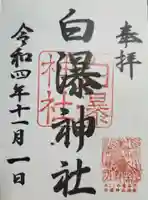 奉拝
白瀑神社
白瀑神社
令和四年十一月一日